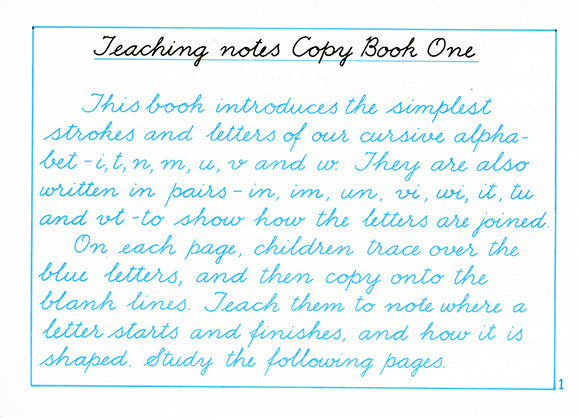 Teaching notes Copy Book One
This book introduces the simplest
strokes and letters of our cursive alpha-
bet - i, t, n, m, u, v and w. They are also
written in pairs - in, im, un, vi, wi, it, tu
and vt - to show how the letters are joined.
On each page, children trace over the
blue letters, and then copy onto the
blank lines. Teach them to note where a
letter starts and finishes, and how it is
shaped. Study the following pages.
1